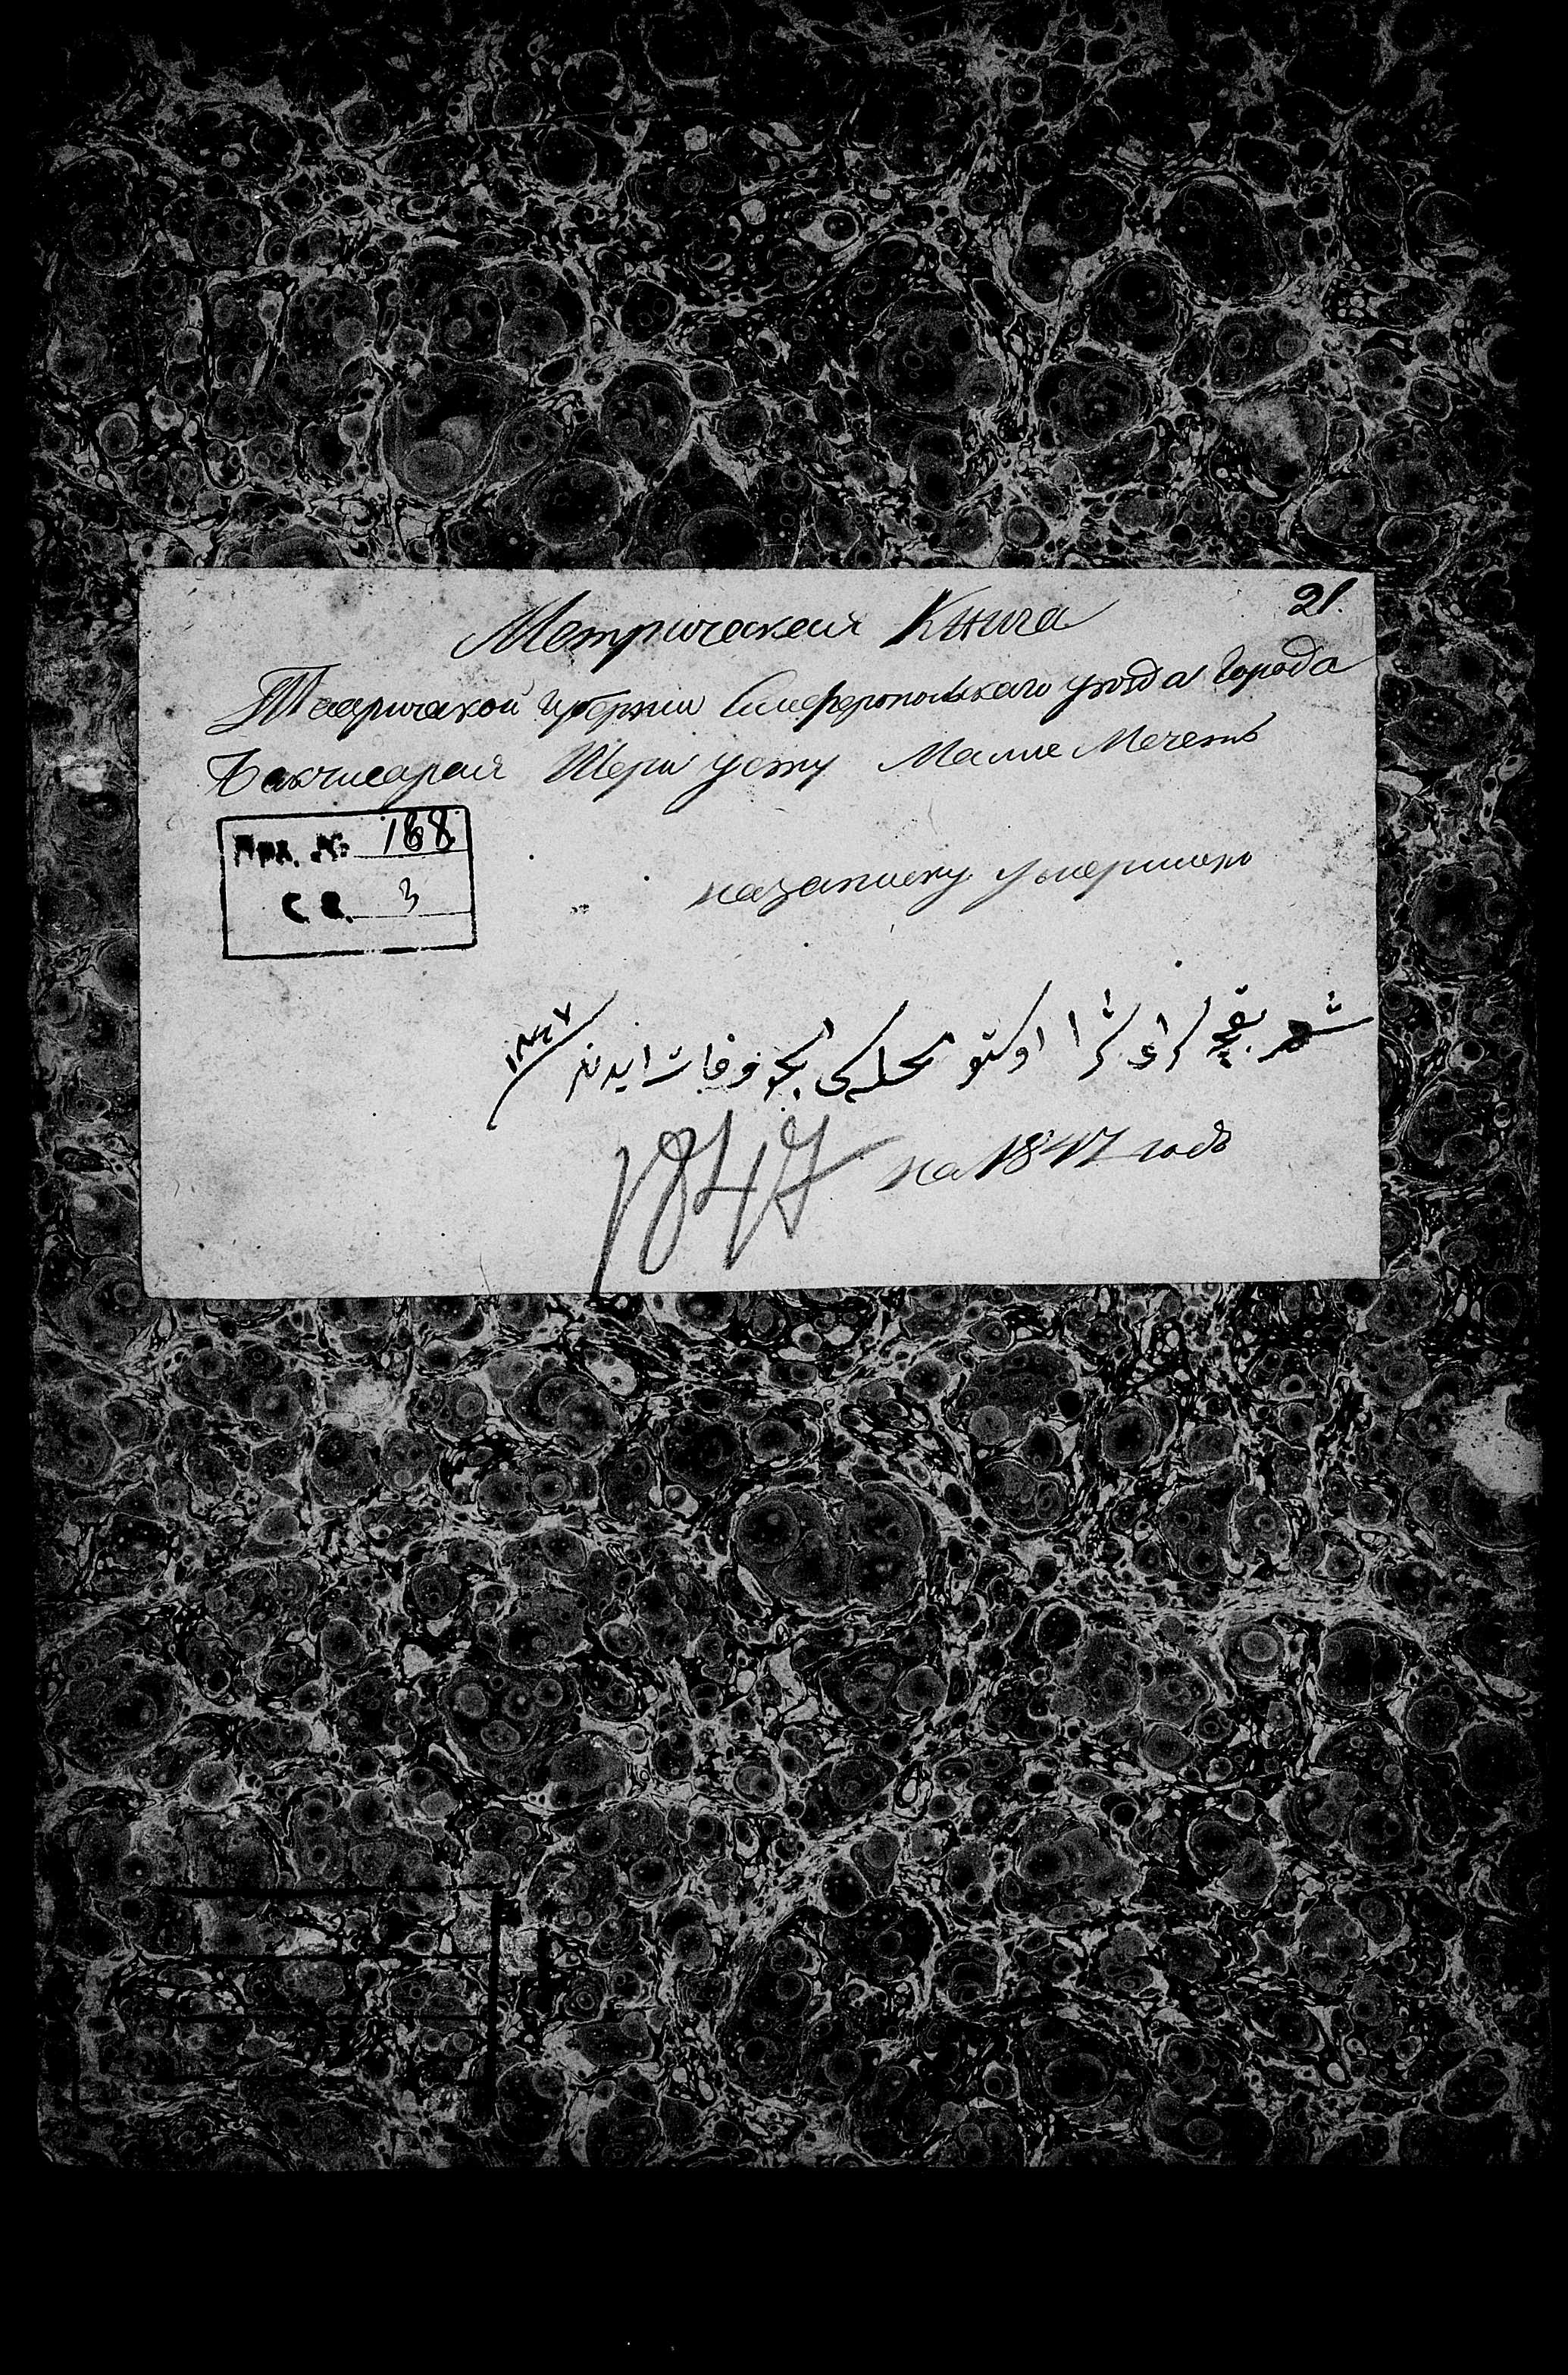 21.
Метрическая Книга
Таврической губернии Симферопольскаго уезда города
Бакчисарая Шери усту Малле Мечеть
Арх. № 168
С В. 3
на записку умерших
شهر بقچه سراى شرا اوستو محله سى ايچون وفات ايدنلر ١٨٤٧
1847
на 1847 годъ